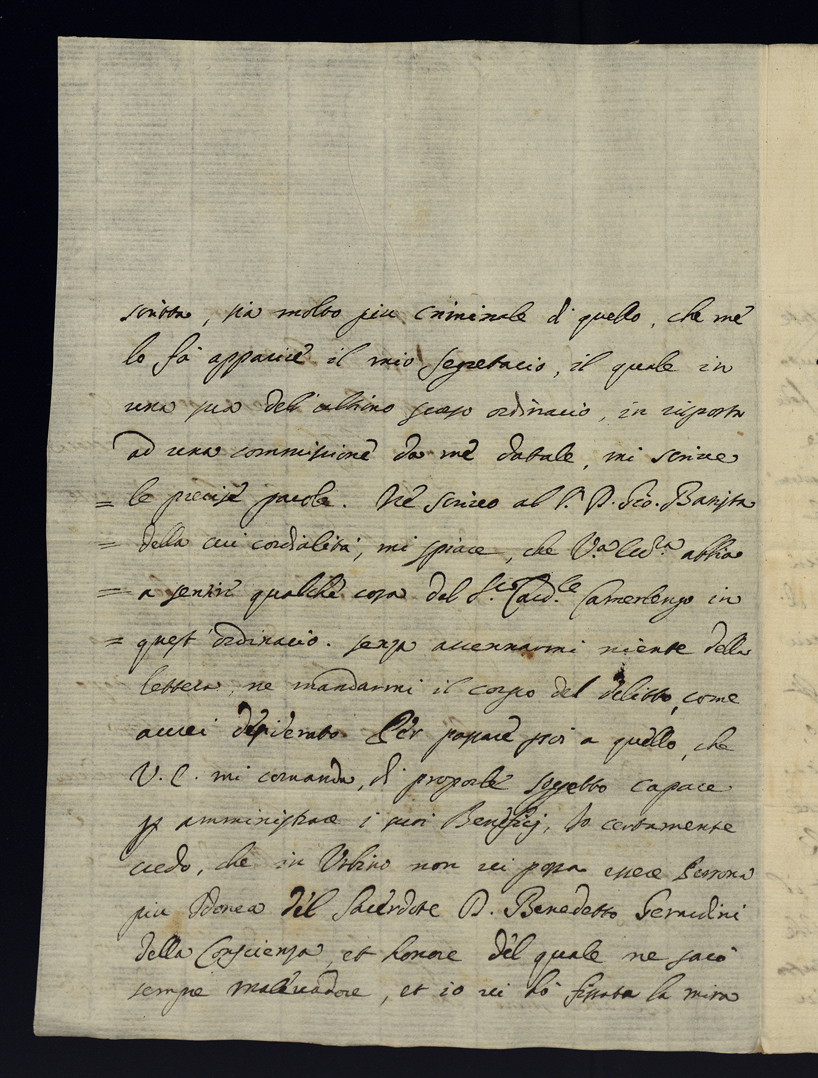 scritta, sia molto piu criminale di quello, che mè
lo fà apparire il mio Segretario, il quale in
una sua dell'ultimo scorso ordinario, in risposta
ad una commissione da mè datale, mi scrive
= le precise parole. Nè scrivo al Sr. D. Gio. Batista
= della cui cordialità, mi spiace, che V.a Ecc.a abbia
= a sentir qualche cosa del S.r Card.le Camerlengo in
= quest'ordinario. senza accennarmi niente della
lettera, ne mandarmi il corpo del delitto, come
avrei desiderato. Per passare poi a quello, che
V. E. mi comanda, di proporle soggetto capace
p amministrare i suoi Beneficj, Io certamente
credo, che in Urbino non vi possa essere Persona
piu Idonea del Sacerdote D. Benedetto
della Conscienza, et honore del quale ne sarò
sempre malevadore, et io vi hò fissata la mira